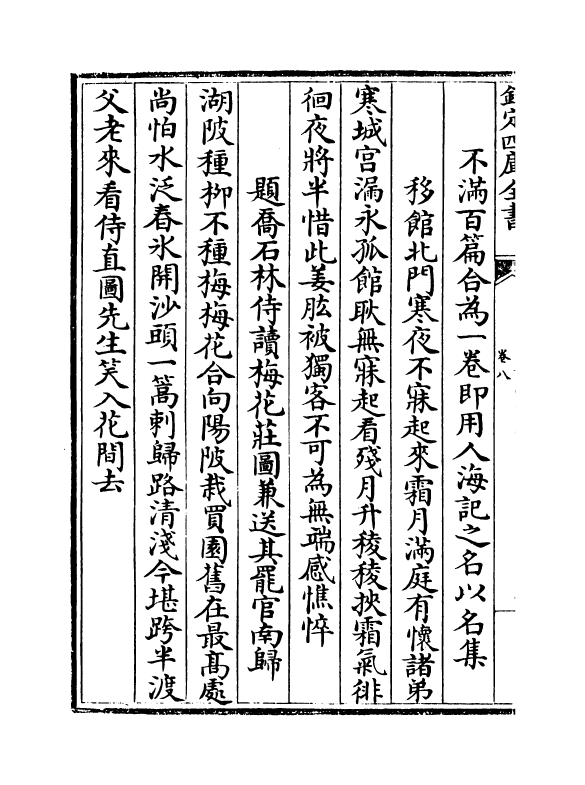 欽定四庫全書
卷八
不滿百篇合為一卷即用人海記之名以名集
移館北門寒夜不寐起來霜月滿庭有懷諸弟
寒城宫漏永孤館耿無寐起看殘月升稜稜挾霜氣徘
徊夜將半惜此姜肱被獨客不可為無端感憔悴
題喬石林侍讀梅花莊圖兼送其罷官南歸
湖陂種柳不種梅梅花合向陽陂栽買園舊在最髙處
尚怕水泛春氷開沙頭一篙刺歸路清淺今堪跨半渡
父老來看侍直圖先生笑入花間去